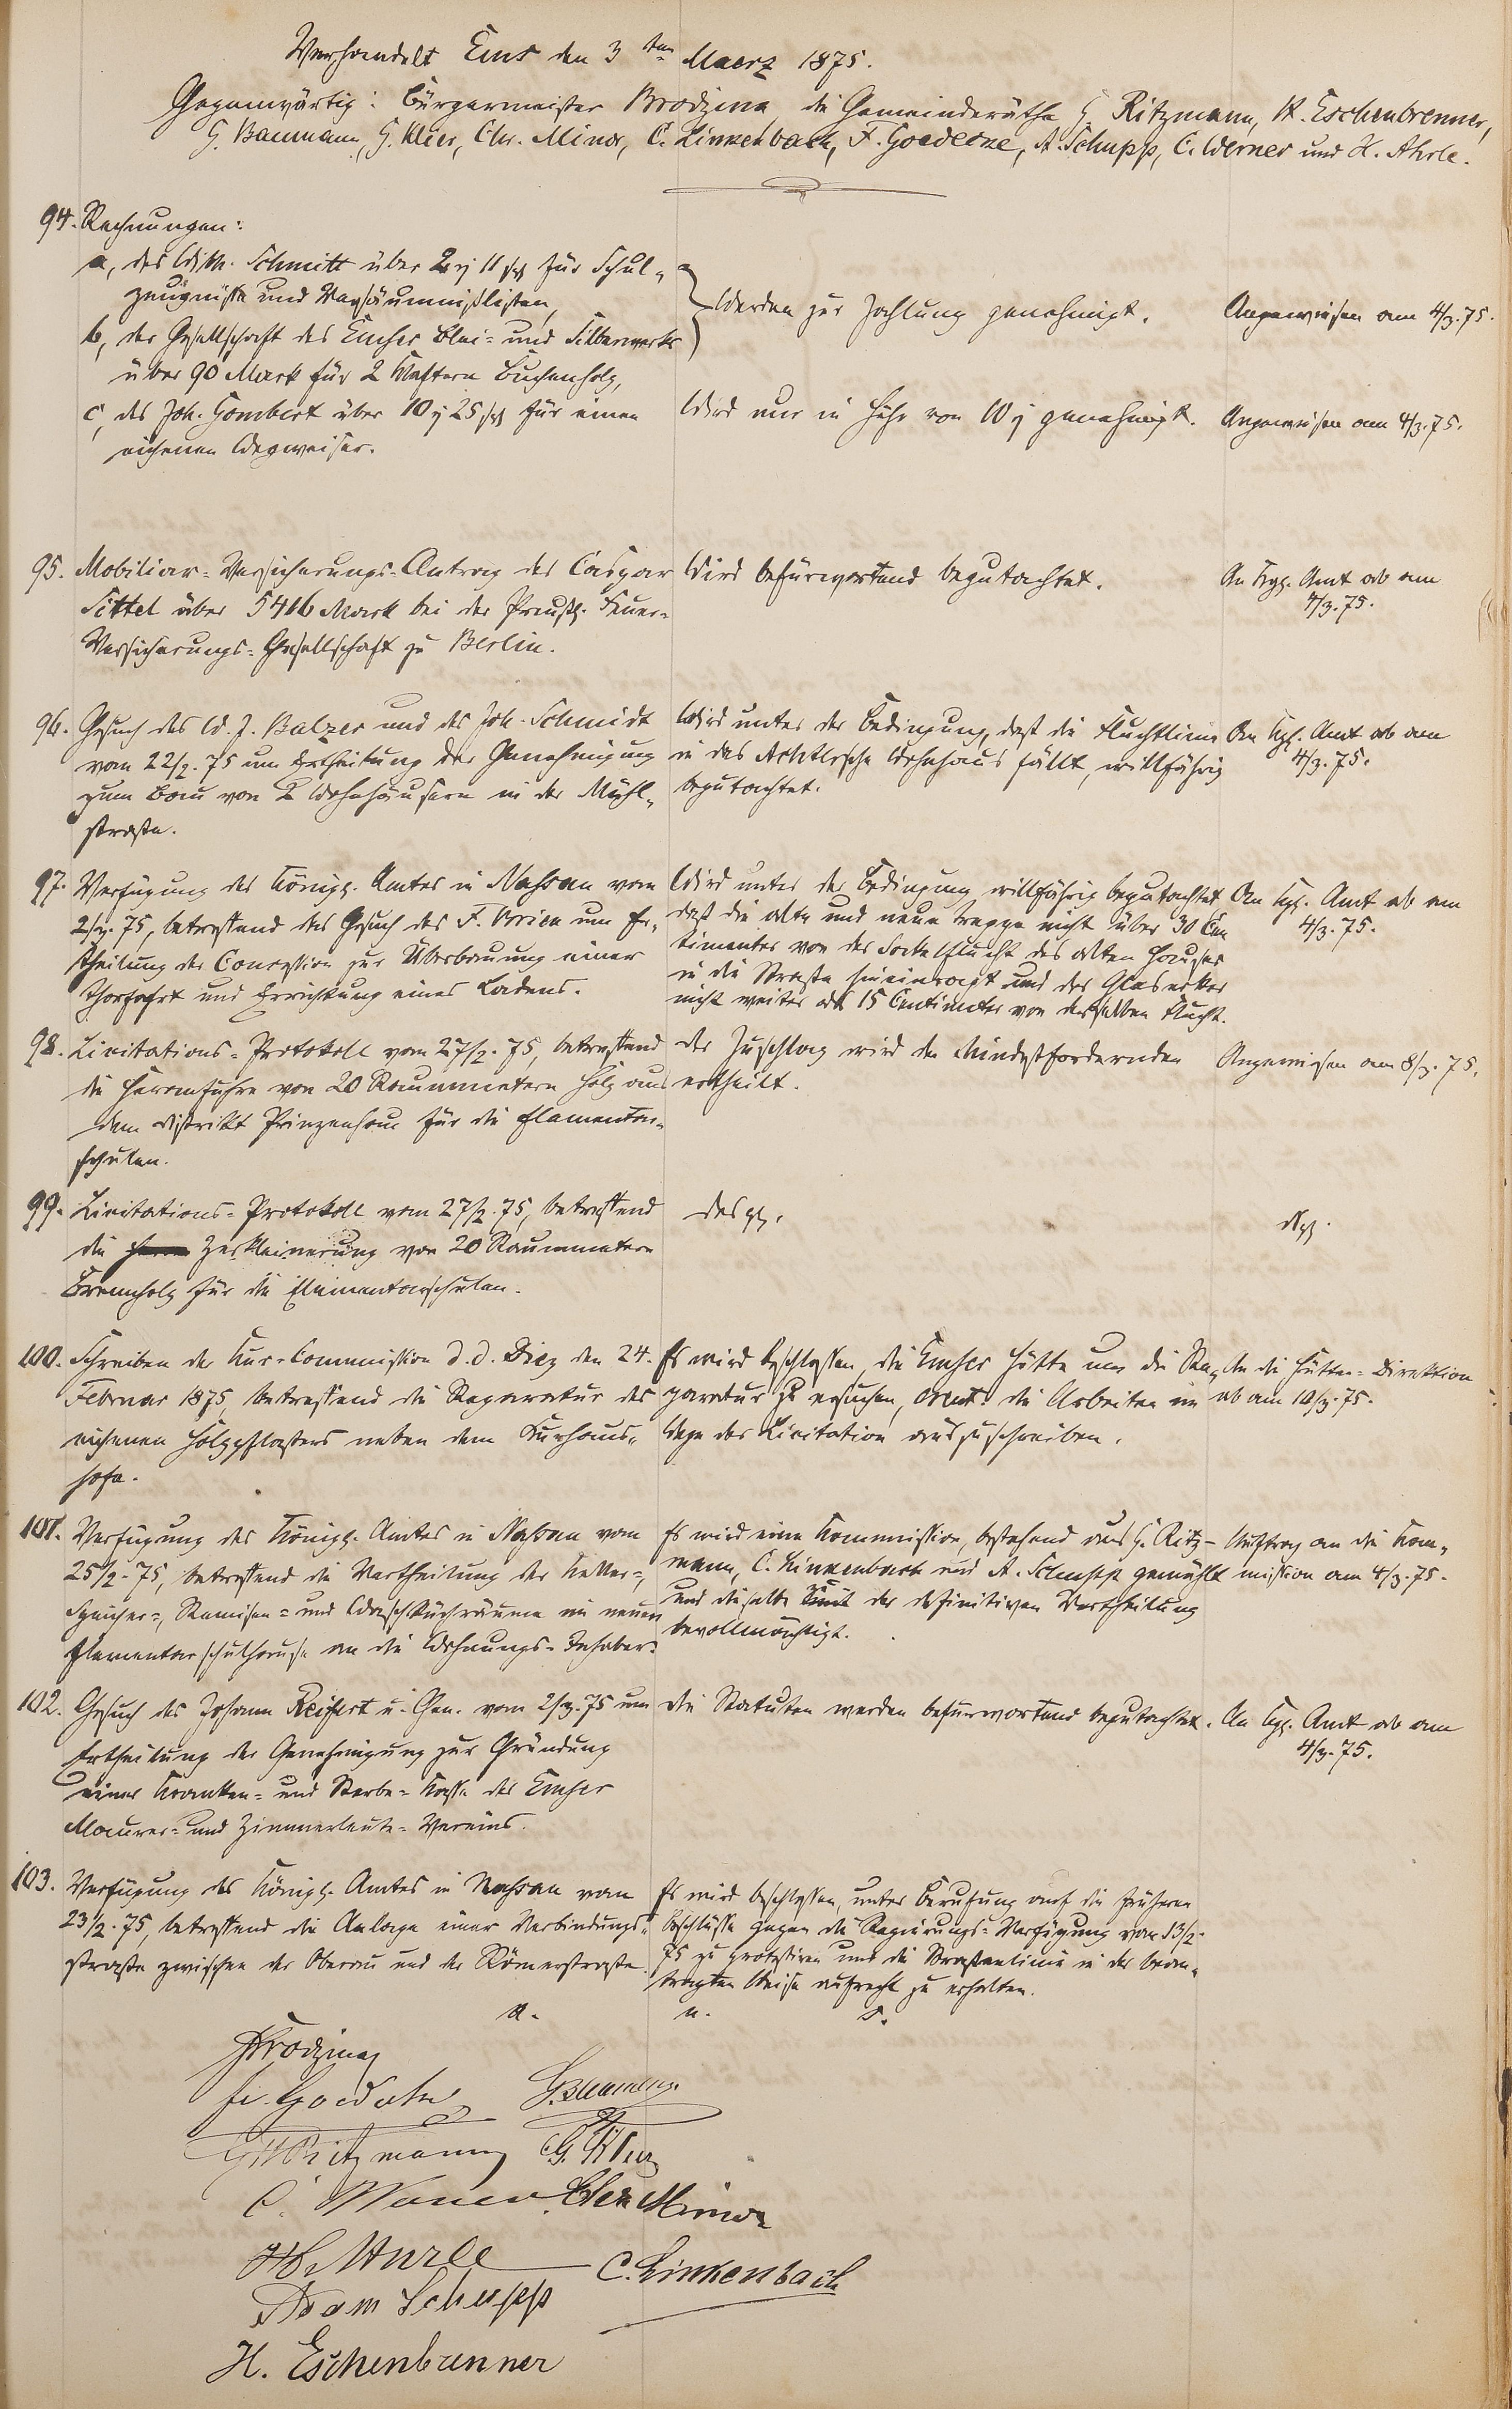 Verhandelt Ems den 3ten Maerz 1875.
Gegenwärtig: Bürgermeister Brodzina, die Gemeinderäthe G. Ritzmann, H. Eschenbrenner,
G. Baumann, G. Klier, Chr. Minor, C. Linkenbach, F. Goedecke, A. Schupp, C. Werner und H. Ahrle.
94. Rechnungen:
a, des Wilh. Schmitt über 11 für Schul-
zeugnisse und Versäumnißlisten,
b, der Gesellschaft des Emser Blei- und Silberwerks
über 90 Mark für 2 Klaftern Buchenholz,
Werden zur Zahlung genehmigt.
Angewiesen am 4/3.75.
c, des Joh. Gombert über 10 25 für einen
eichenen Wegweiser.
Wird nur in Höhe von 10 genehmigt.
Angewiesen am 4/3.75.
95. Mobiliar-Versicherungs-Antrag des Caspar
Sittel über 5416 Mark bei der Preuß. Feuer-
Versicherungs-Gesellschaft zu Berlin.
Wird befürwortend begutachtet.
An Kgl. Amt ab am
4/3.75.
96. Gesuch des W. J. Balzer und des Joh. Schmidt
vom 22/2.75 um Ertheilung der Genehmigung
zum Bau von 2 Wohnhäusern in der Mühl-
straße.
Wird unter der Bedingung, daß die Fluchtlinie
in das Wohnhaus fällt, willfährig
begutachtet.
An Kgl. Amt ab am
4/3.75.
97. Verfügung des Königl. Amtes in Nassau vom
2/3.75, betreffend das Gesuch des F. um Er-
theilung der Concession zur Überbauung einer
Thorfahrt und Errichtung eines Ladens.
Wird unter der Bedingung willfährig begutachtet
daß die alte und neue Treppe nicht über 30 Cen
timenter von der Sockelflucht des alten Hauses
in die Straße hineinragt und der Glaserker
nicht weiter als 15 Centimeter von derselben Flucht.
An Kgl. Amt ab am
4/3.75.
98. Licitations-Protokoll vom 27/2.75, betreffend
die Heranfuhre von 20 Raummetern Holz aus
dem Distrikt Prinzenhau für die Elementar-
schulen.
Der Zuschlag wird den Mindestfordernden
ertheilt.
Angewiesen am 8/3.75.
99. Licitations-Protokoll vom 27/2.75, betreffend
die Zerkleinerung von 20 Raummetern
Brennholz für die Elementarschulen.
Desgl.
Dgl.
100. Schreiben der Kur-Commission d.d. Diez den 24.
Februar 1875, betreffend die Reparatur des
eichenen Holzpflasters neben dem Kurhaus-
hofe.
Es wird beschlossen, die Emser Hütte um die Re-
paratur zu ersuchen, event. die Arbeiten im
Wege der Licitation auszuschreiben.
An die Hütten-Direktion
ab am 10/3.75.
101. Verfügung des Königl. Amtes in Nassau vom
25/2.75, betreffend die Vertheilung der Keller-,
Speicher-, Remisen- und Waschküchräume im neuen
Elementarschulhause an die Wohnungs-Inhaber.
Es wird eine Kommission, bestehend aus G. Ritz-
mann, C. Linkenbach und A. Schupp gewählt
und dieselbe mit der definitiven Vertheilung
bevollmächtigt.
Auftrag an die Kom-
mission am 4/3.75.
102. Gesuch des Johann Reifert u. Gen. vom 2/3.75 um
Ertheilung der Genehmigung zur Gründung
einer Kranken- und Sterbe-Kasse des Emser
Maurer- und Zimmerleute-Vereins.
Die Statuten werden befürwortend begutachtet.
An Kgl. Amt ab am
4/3.75.
103. Verfügung des Königl. Amtes in Nassau vom
23/2.75, betreffend die Anlage einer Verbindungs-
straße zwischen der Oberau und der Römerstraße.
Es wird beschlossen, unter Berufung auf die früheren
Beschlüsse gegen die Regierungs-Verfügung vom 13/2.
75 zu protestiren und die Straßenlinie in der bean-
tragten Weise aufrecht zu erhalten.
a. u. s.
Brodzina
Fr. Goedecke G. Baumann
G. Ritzmann G. Klier
C. Werner Chr. Minor
C. Linkenbach
Adam Schupp
H. Eschenbrenner